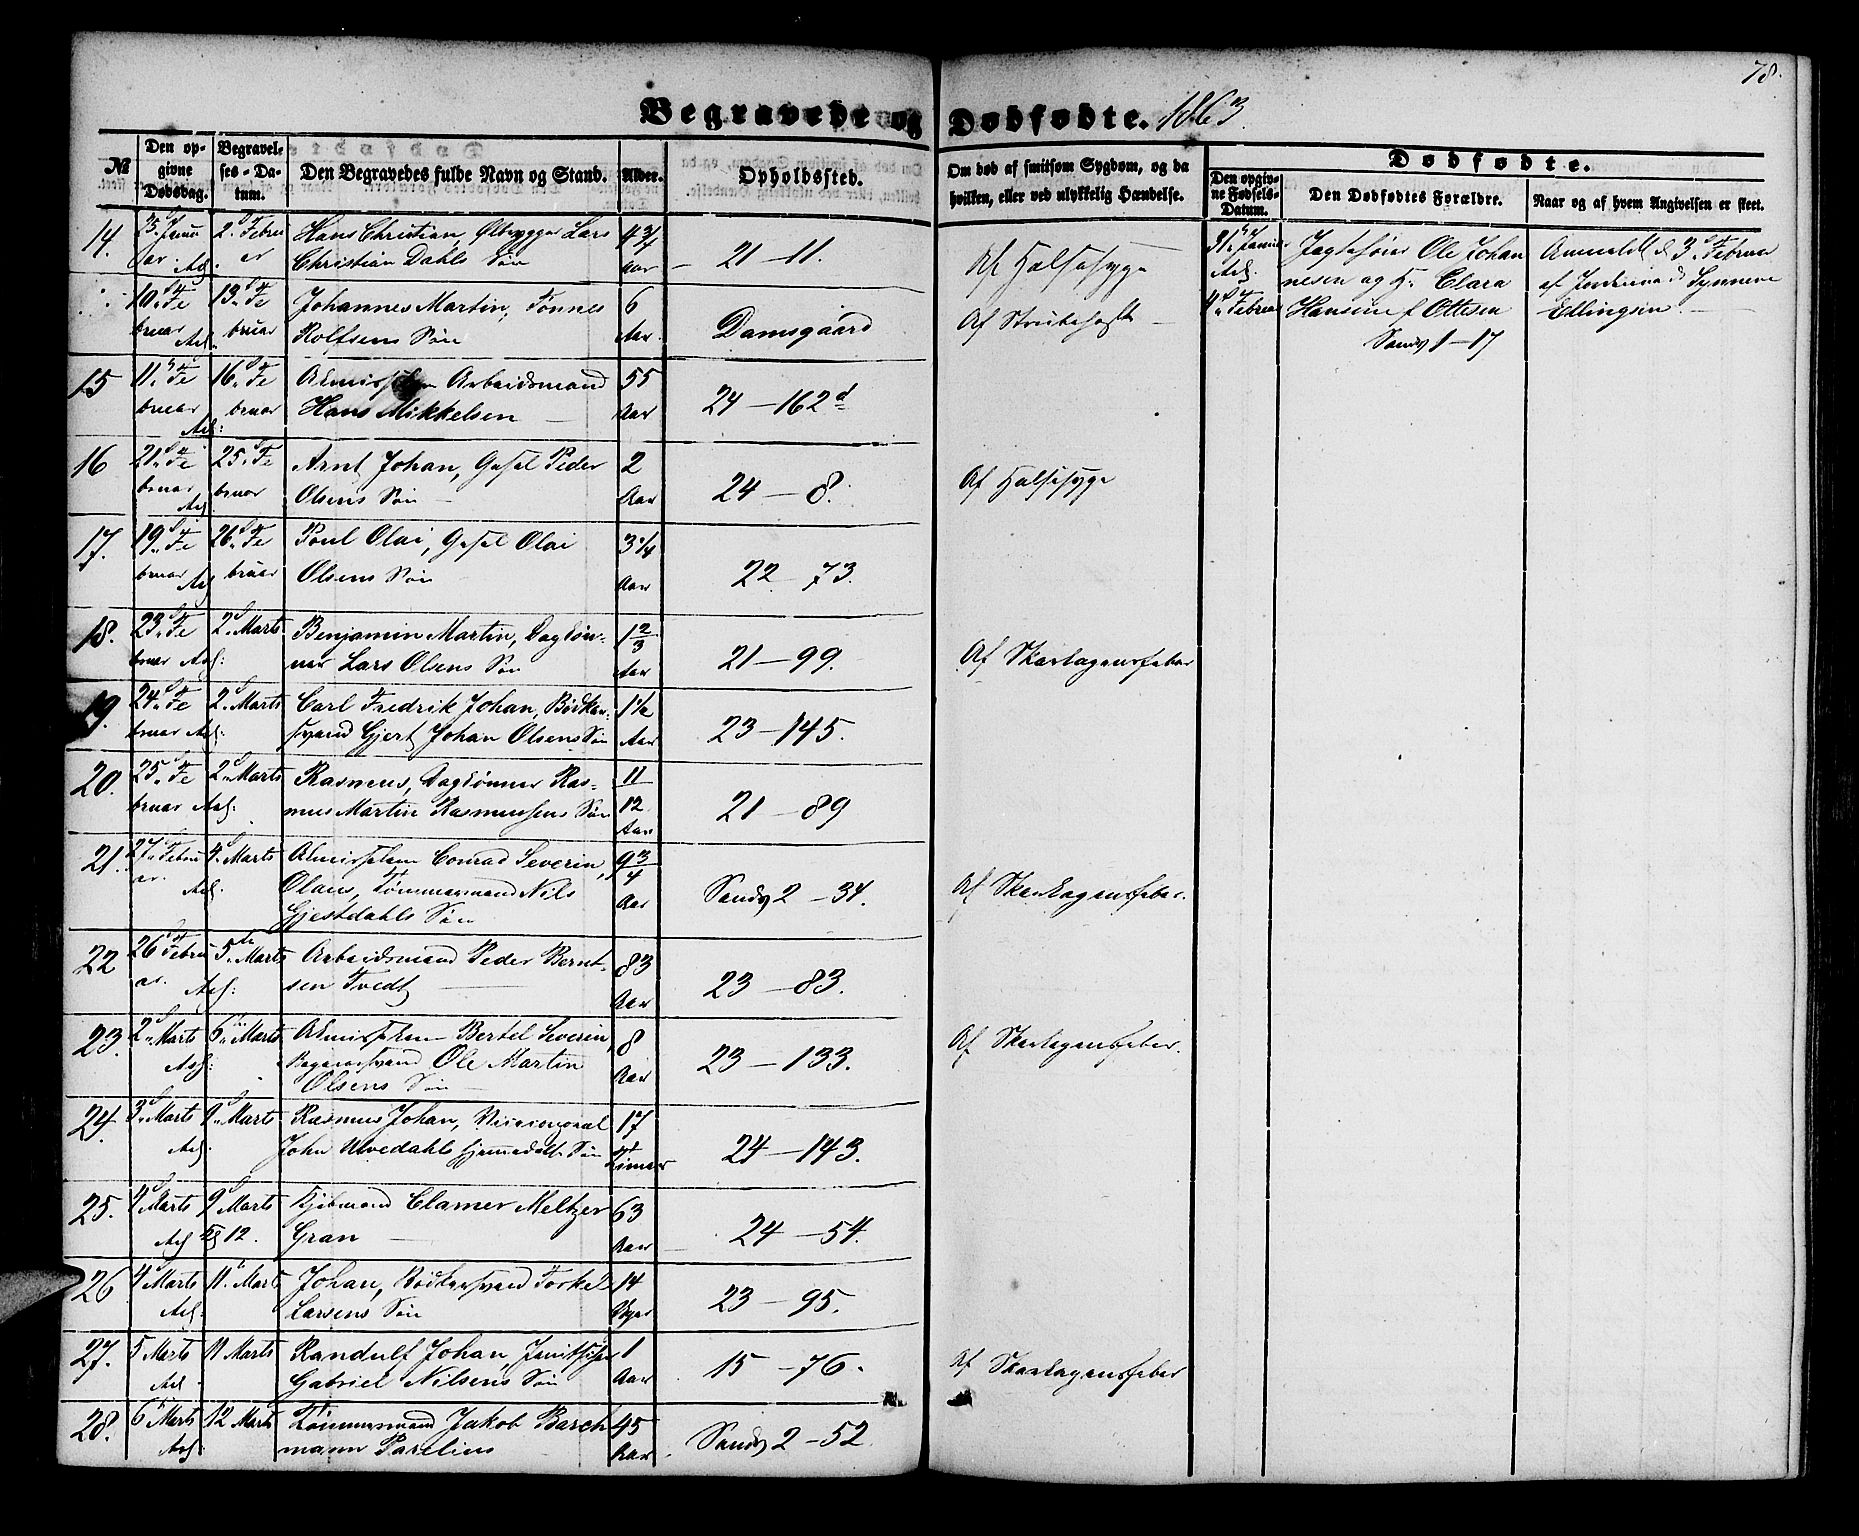 78.
Begravede og Dødfødte. 1863.
№
Den opgivne Dødsdag.
Begravelses-Datum.
Den Begravedes fulde Navn og Stand.
Alder.
Opholdssted.
Om død af smitsom Sygdom, og da hvilken, eller ved ulykkelig Hændelse.
Dødfødte.
Den opgivne Fødsels-Datum.
Den Dødfødtes Forældre.
Naar og af hvem Angivelsen er skeet.
14. 25 Janu 2. Febru Hans Christian, Ølbrygger Lars 4 3/4
ar. er Christian Dahls Søn Aar 21-11. Af Halssyge
10. Fe 13. Fe Johannes Martin, Tønnes 6
bruar bruar Rolfsens Søn Aar. Damsgaard Af Strubehoste
15 11. Fe 16. Fe Almisselem Arbeidsmand 55
bruar bruar Hans Mikkelsen Aar 24-162 d
16 21. Fe 25. Fe Arnt Johan, Peder 2
bruar bruar Olsens Søn Aar 24-8. Af Halssyge
17. 19. Fe 26. Fe Poul Olai, Olai 3 1/4
bruar bruar Olsens Søn Aar 22-73.
18. 23. Fe 2. Marts Benjamin Martin, Dagløn- 1 2/3
bruar ner Lars Olsens Søn Aar 21-99. Af Skarlagensfeber
19. 24. Fe 2. Marts Carl Fredrik Johan, Bødker- 1 1/2
bruar svend Gjert Johan Olsens Søn Aar 23-145.
20. 25. Fe 2. Marts Rasmus, Daglønner Ras- 11/12
bruar mus Martin Rasmussens Søn Aar 21-89
21. 27. Febru 4. Marts Almisselem Conrad Severin, 9 3/4
ar. Olaus, Tømmermand Nils Aar Sandv 2-34. Af Skarlagensfeber.
Gjestdahls Søn
22 26 Febru 5te Marts Arbeidsmand Peder Bernt- 83
ar. sen Tvedt Aar 23-83.
23. 2. Marts 6. Marts Almisselem Bertel Severin, 8
Bagersvend Ole Martin Aar 23-133. Af Skarlagensfeber.
Olsens Søn
24. 3. Marts 9. Marts Rasmus Johan, 17
John Ulvedahls Søn Timer 24-143.
25. 4 Marts 9 Marts Kjøbmand Clamer Meltzer 63
Kl 12. Gran Aar 24-54.
26 4 Marts 11. Mart Johan, Bødkersvend Torkel 14
Larsens Søn Uger 23-95.
27. 5 Marts 11 Marts Randulf Johan, 1
Gabriel Nilsens Søn Aar 15-76. Af Skarlagensfeber
28. 6 Marts 12 Marts Tømmermand Jakob Barch 45
mann Parelius Aar Sandv 2-52.
31. Janua Ole Johan Anmeldt d 3. Februar
nesen og H. Clara af Jordemod. Synneve
4. Februar Hansine f Ottesen Ellingsen.
Sandv 1-17